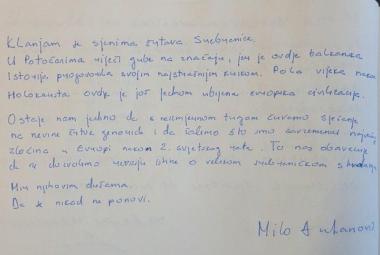 Klanjam se sjenima žrtava Srebrenice.
U Potočarima riječi gube na značaju, jer je ovdje balkanska
istorija progovorila svojim najstrašnijim krikom. Pola vijeka nakon
Holokausta ovdje je još jednom ubijena evropska civilizacija.
Ostaje nam jedno da s neizmjernom tugom čuvamo sjećanje
na nevine žrtve genocida i da žalimo što smo savremenici najvećeg
zločina u Evropi nakon 2. svjetskog rata. To nas obavezuje
da ne dozvolimo nikad istine o velikom srebreničkom stradanju
Mir njihovim dušama.
Da se nikad ne ponovi.
Milo Đukanović